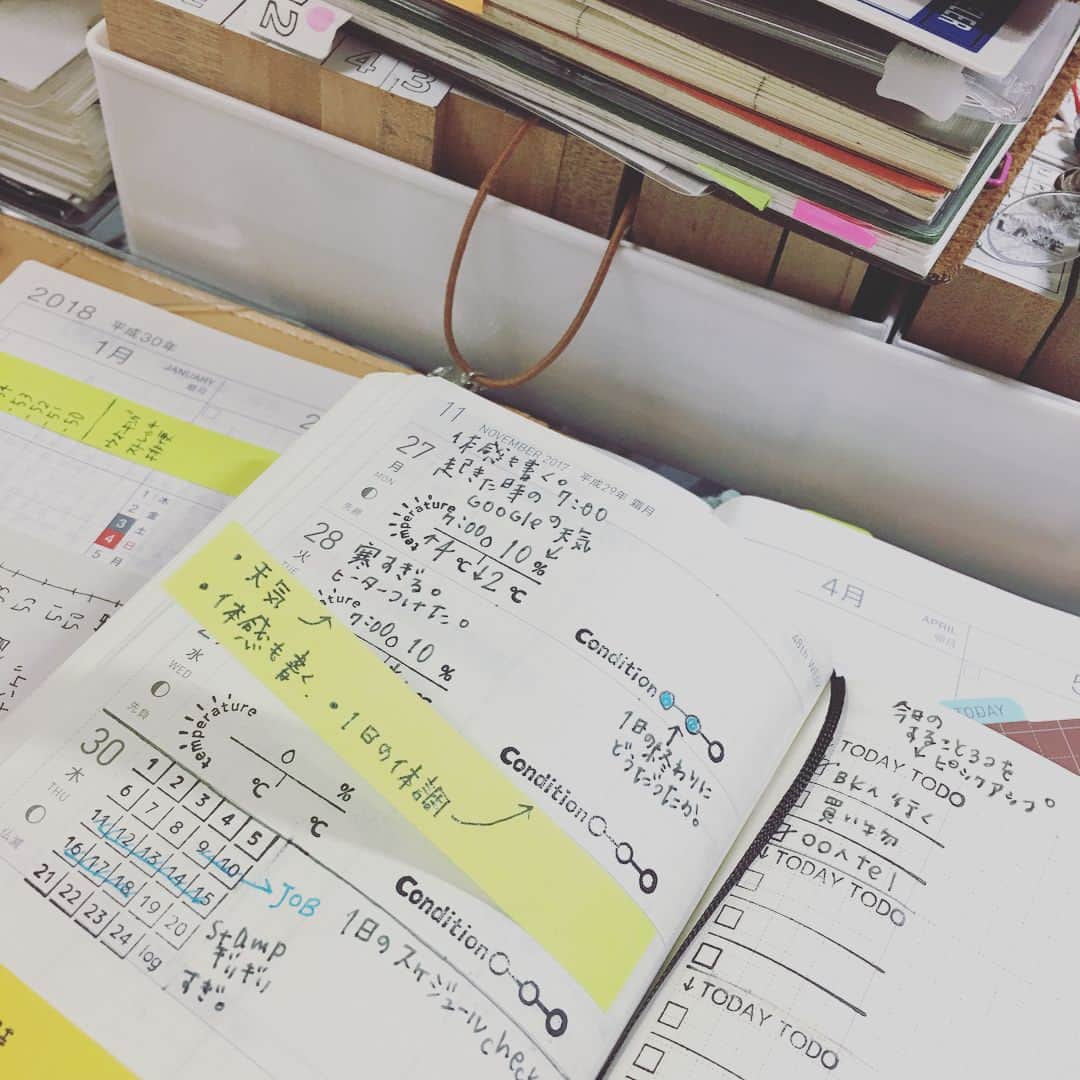 2
4
3
2018
平成30年
1月
JANUARY
睦月
ストレッチ
1 木
2 金
3 土
4 日
5 月
11
NOVEMBER 2017 平成29年 霜月
27
月
MON
先勝
体感も書く。
起きた時の 7:00
GOOGLEの天気
temperature
7:00 10%
↑4℃↓2℃
28
火
TUE
寒すぎる。
ヒーターつけた。
7:00 10%
・天気
・体感も書く.
・1日の体調
水
WED
先負
temperature
0 %
℃
℃
Condition
1日の終わりに
どうだったか。
Condition
30
木
THU
仏滅
1 2 3 4 5
6 7 8 9 10
11 12 13 14 15
16 17 18 19 20
21 22 23 24 log
→JOB
Stamp
ギリギリ
すぎ。
Condition
1日のスケジュールcheck
48th WEEK
4月
APRIL
卯月
TODAY
今日の
することろつを
↓ピックアップ。
TODAY TODO
BKへ行く
買い物
〇〇へtel
↓TODAY TODO
↓TODAY TODO